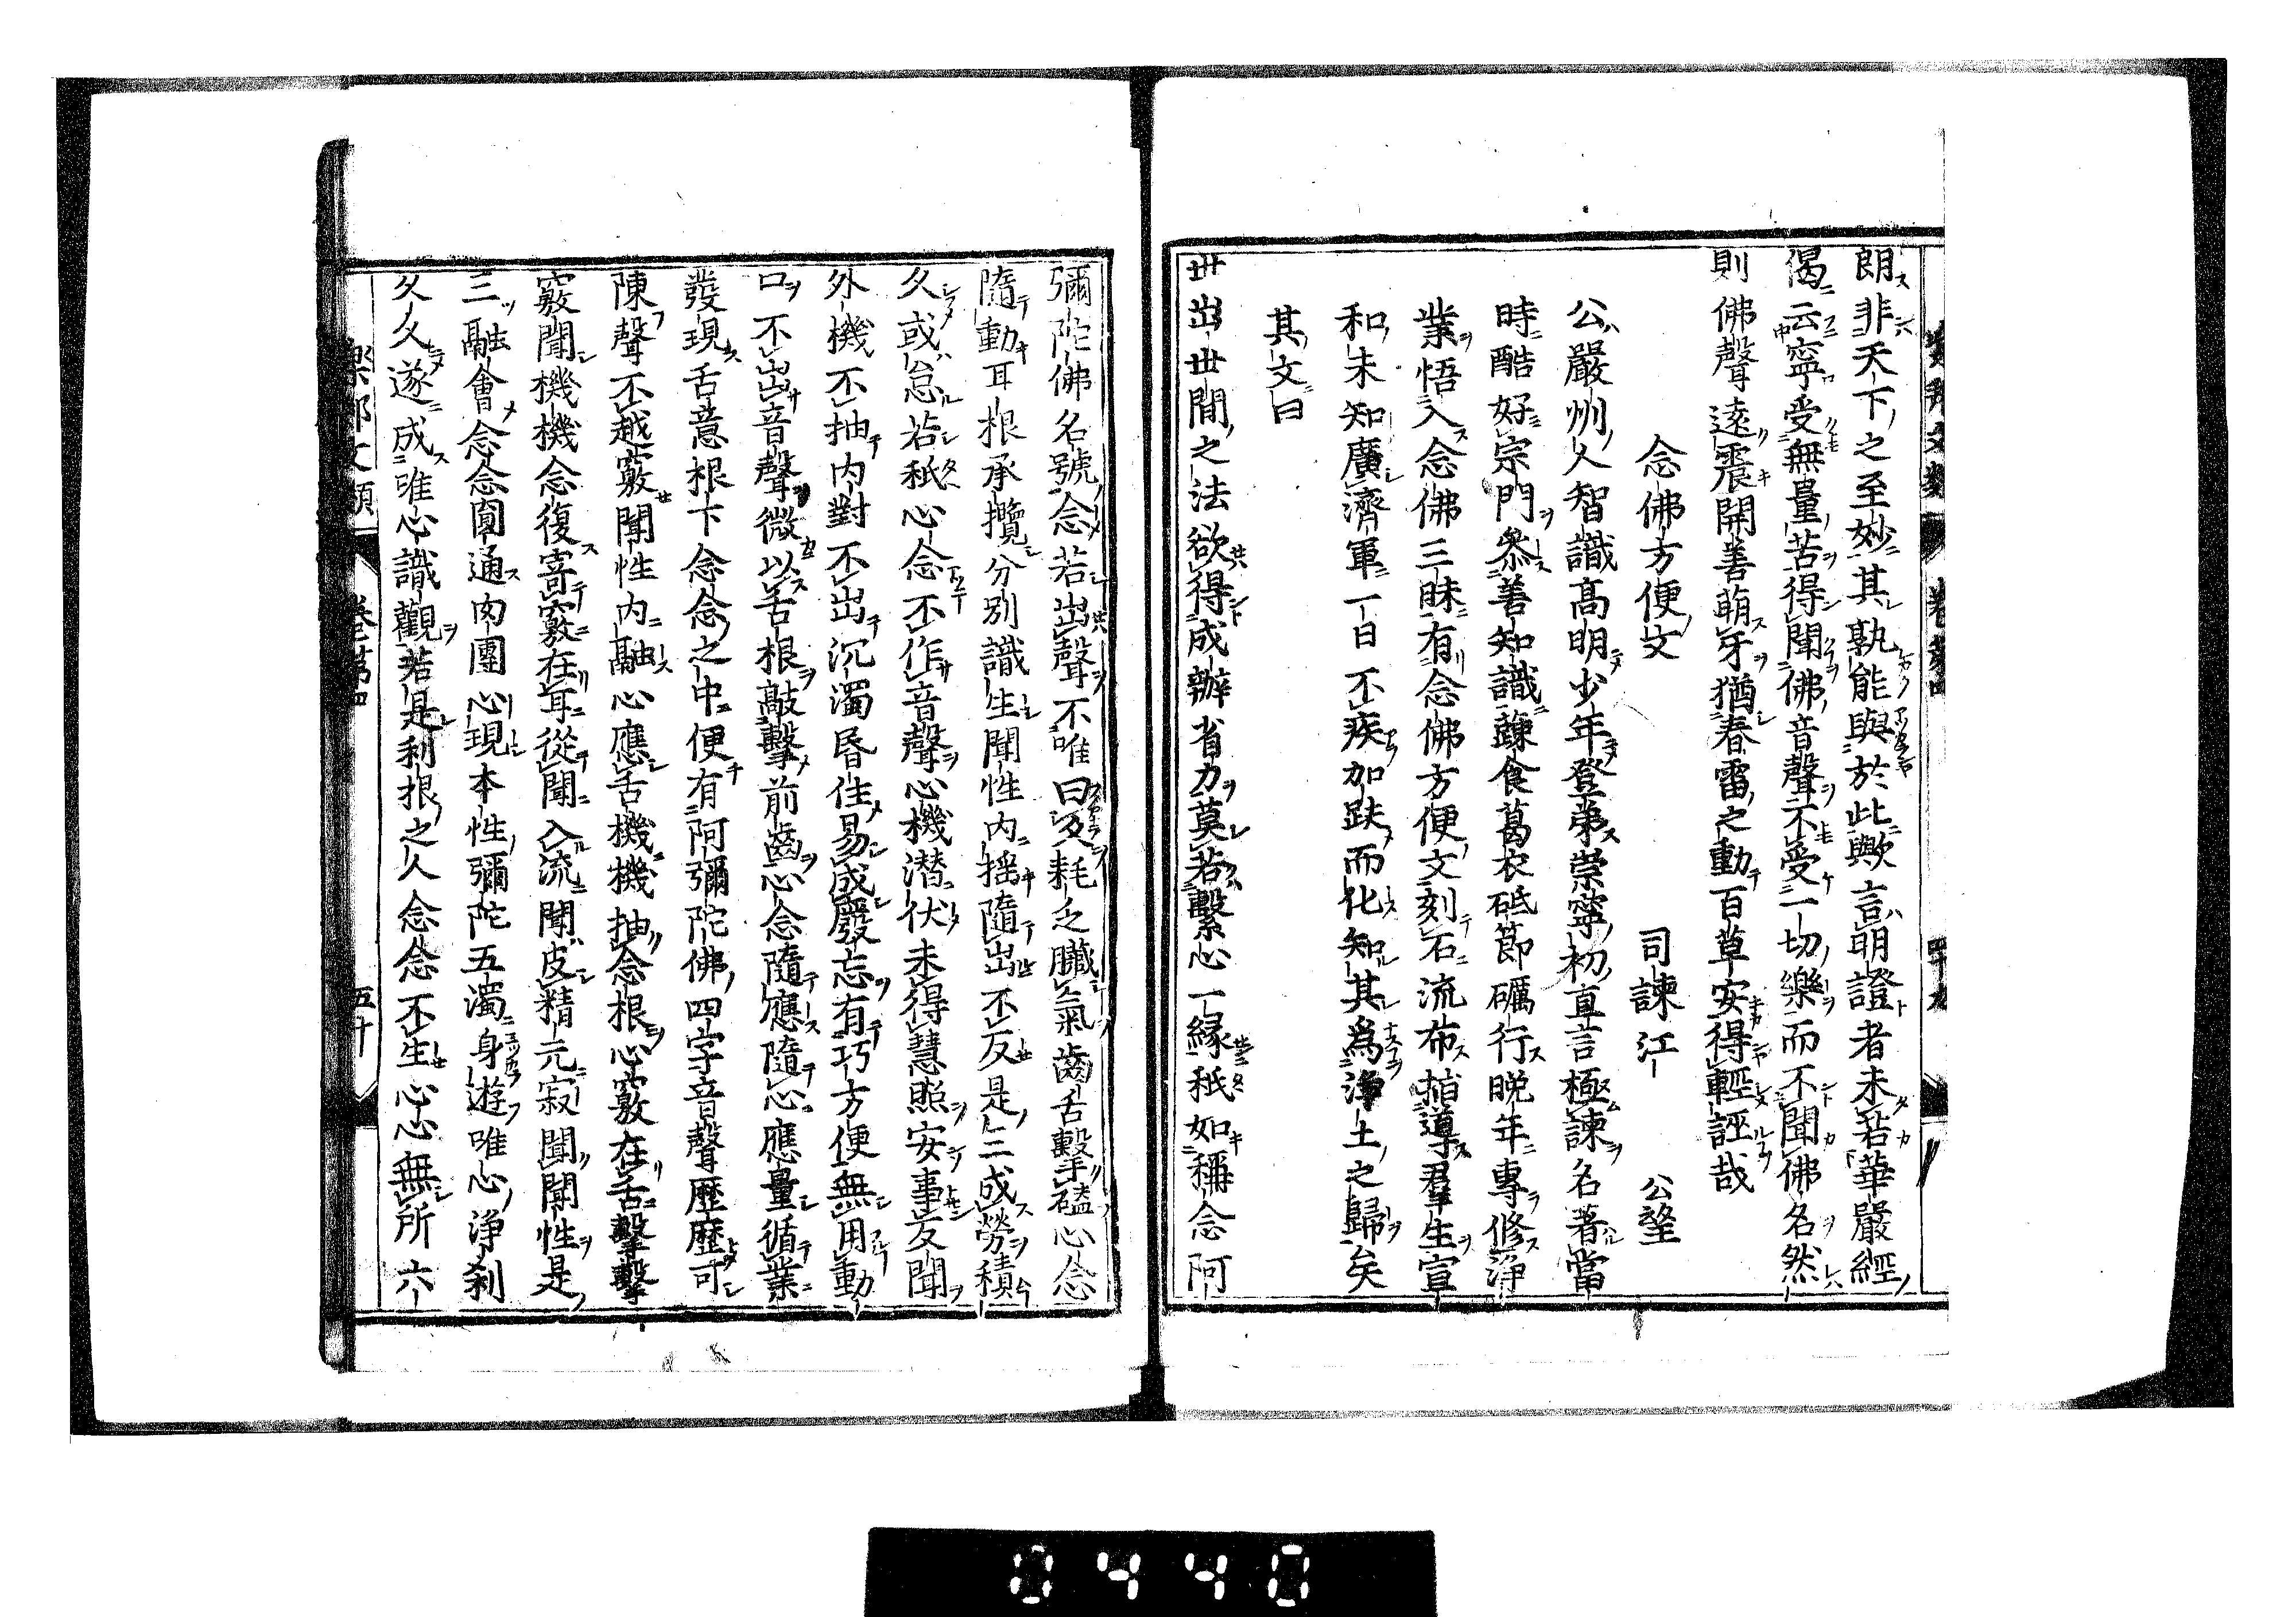 朗非天下之至妙其孰能與於此歟言明證者未若華嚴經
偈云寧受無量苦得聞佛音聲不受一切樂而不聞佛名然
則佛聲遠震開善萌牙猶春雷之動百草安得輕誣哉
念佛方便文 司諫江 公望
公嚴州人智識高明少年登第崇寧初直言極諫名著當
時酷好宗門叅善知識蔬食葛衣砥節礪行晚年專修淨
業悟入念佛三昧有念佛方便文刻石流布指導羣生宣
和末知廣濟軍一日不疾加趺而化知其爲淨土之歸矣
其文曰
世出世間之法欲得成辦省力莫若繫心一緣秖如稱念阿
彌陀佛名號念若出聲不唯曰久耗乏臟氣齒舌擊磕心念
隨動耳根承攬分別識生聞性内搖隨出不反是二成勞積
久或怠若秖心念不作音聲心機潛伏未得慧照安事反聞
外機不抽内對不出沉濁昏住易成廢忘有巧方便無用動
口不出音聲微以舌根敲擊前齒心念隨應隨心應量循業
發現舌意根下念念之中便有阿彌陀佛四字音聲歷歷可
陳聲不越竅聞性内融心應舌機機抽念根心竅在舌擊擊
竅聞機機念復寄竅在耳從聞入流聞皮精元寂聞聞性是
三融會念念圓通肉團心現本性彌陀五濁身遊唯心淨刹
久久遂成唯心識觀若是利根之人念念不生心心無所六
樂邦文類 卷第四 五十